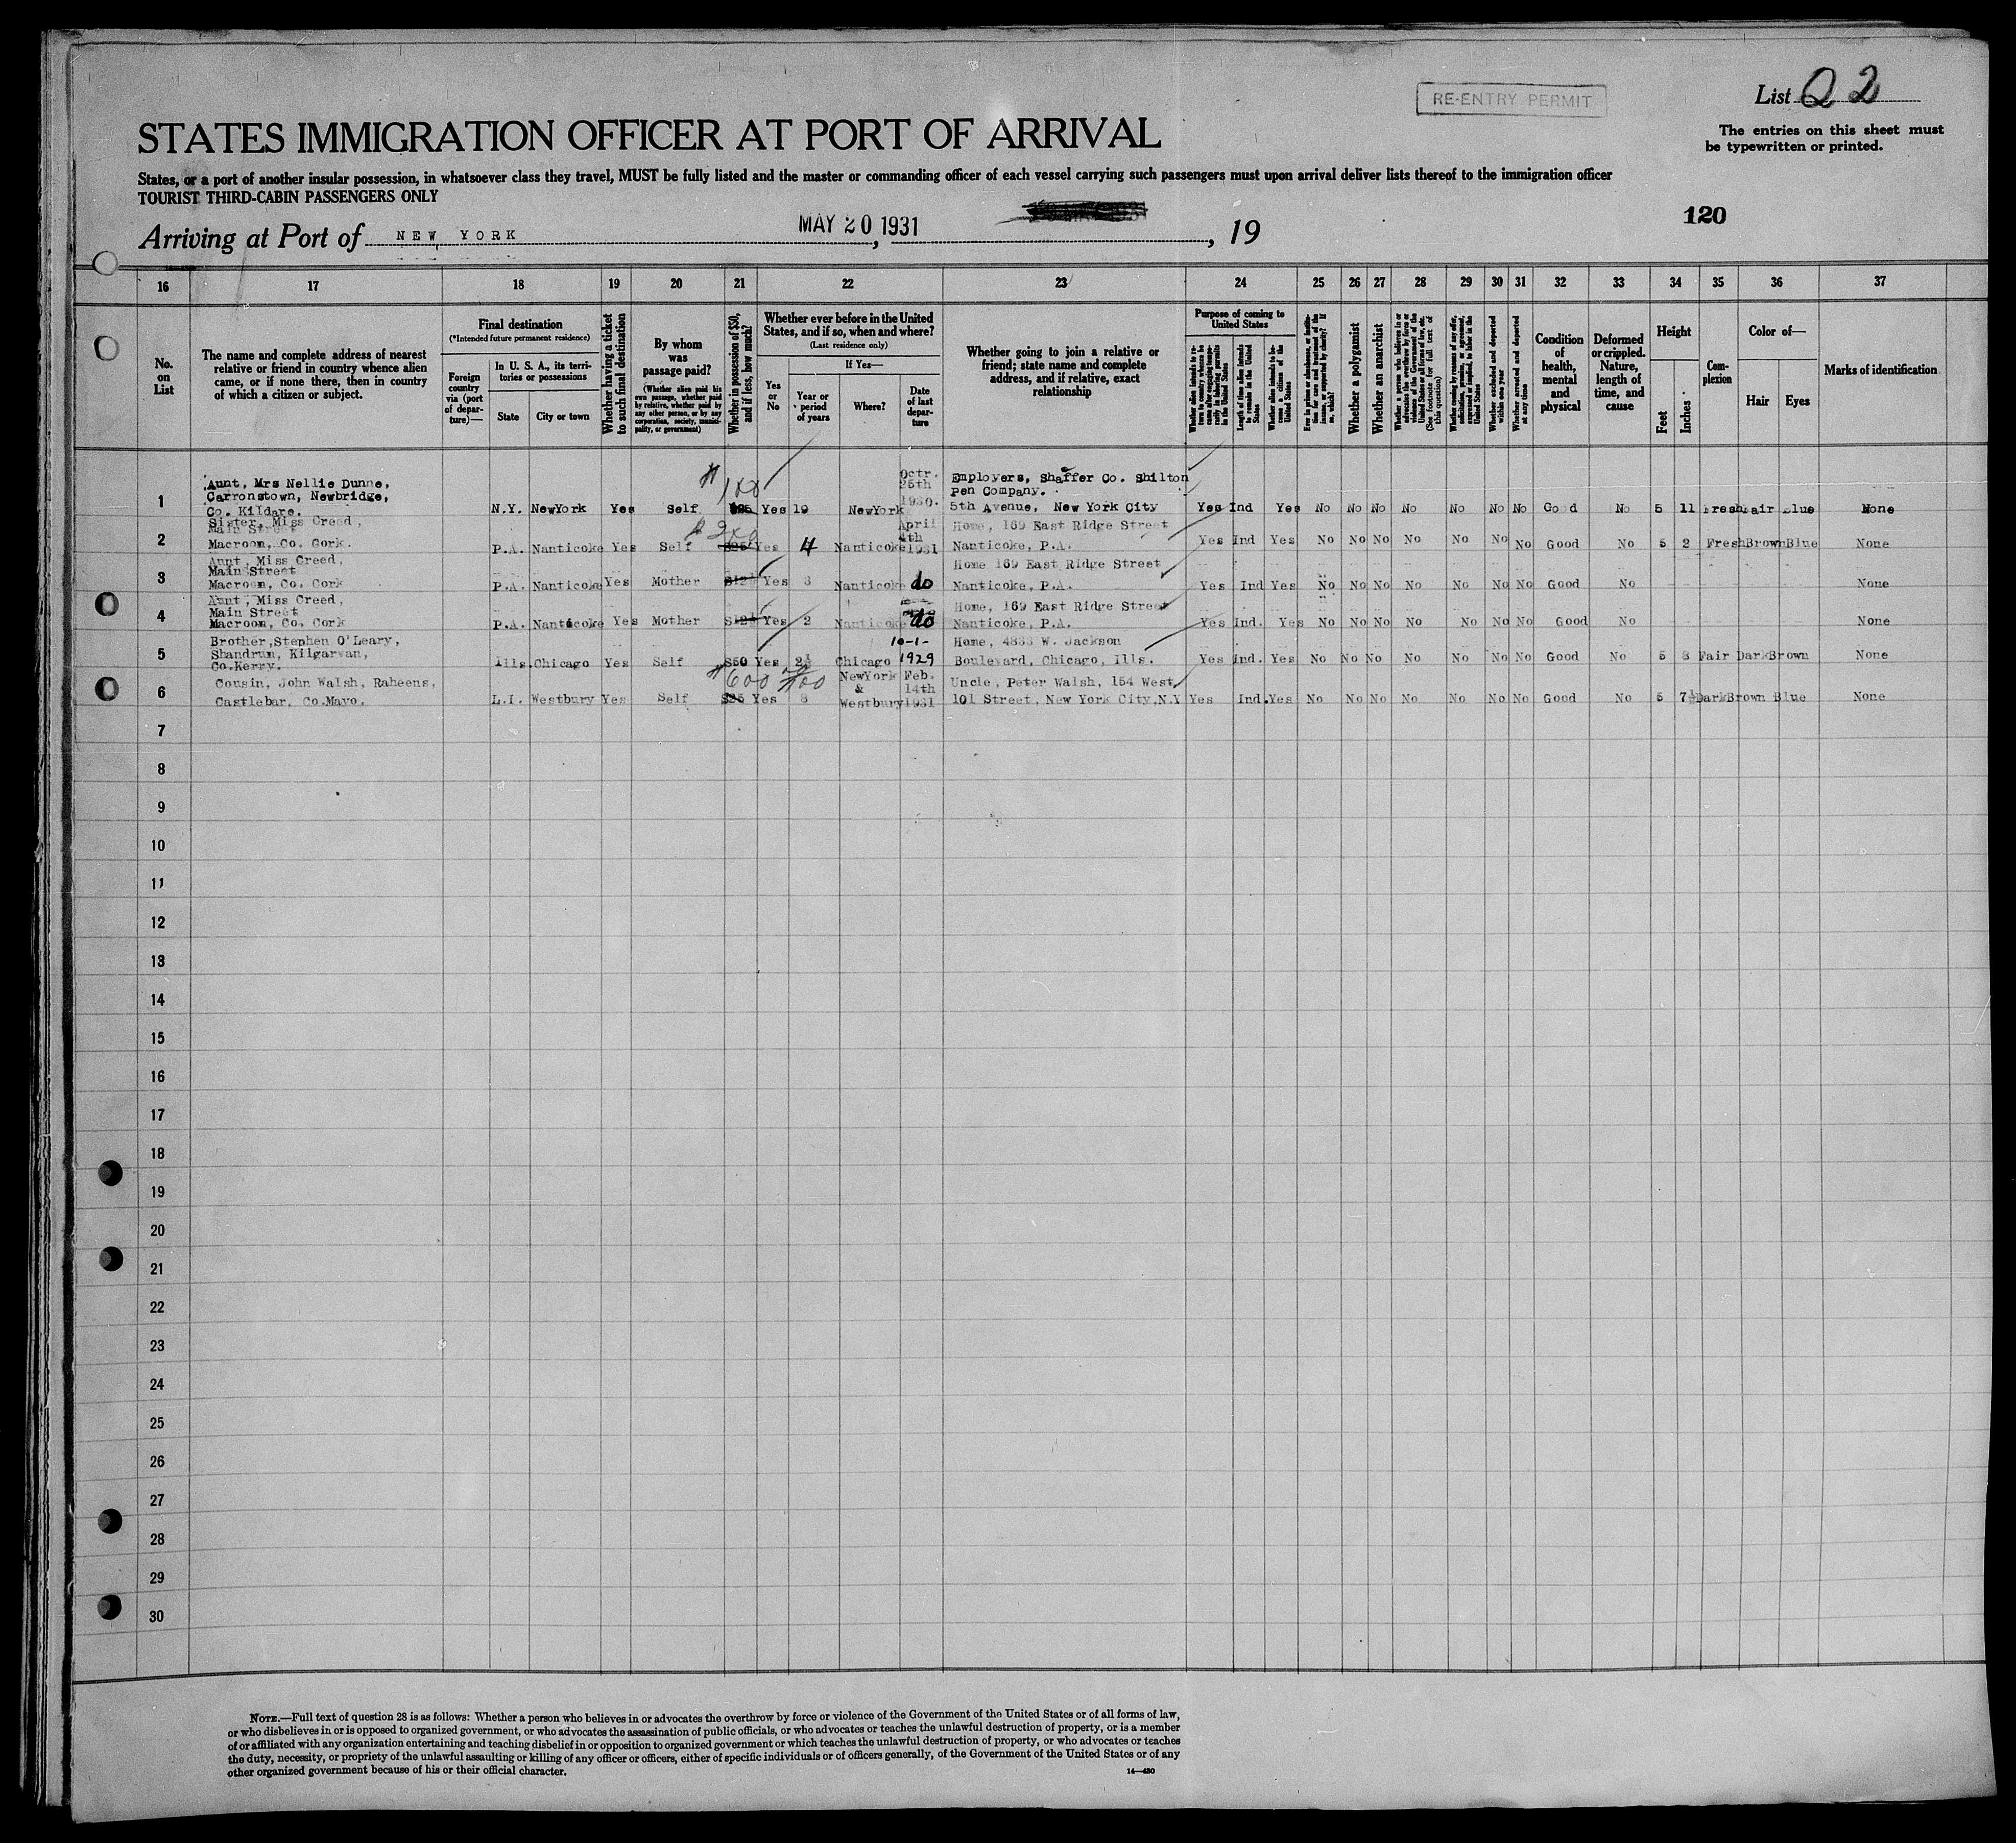 RE-ENTRY PERMIT
List Q 2
STATES IMMIGRATION OFFICER AT PORT OF ARRIVAL
The entries on this sheet must
be typewritten or printed.
States, or a port of another insular possession, in whatsoever class they travel, MUST be fully listed and the master or commanding officer of each vessel carrying such passengers must upon arrival deliver lists thereof to the immigration officer
TOURIST THIRD-CABIN PASSENGERS ONLY
120
Arriving at Port of NEW YORK MAY 20 1931, , 19
16 17 18 19 20 21 22 23 24 25 26 27 28 29 30 31 32 33 34 35 36 37
No.
on
List
The name and complete address of nearest
relative or friend in country whence alien
came, or if none there, then in country
of which a citizen or subject.
Final destination
(*Intended future permanent residence)
Foreign
country
via (port
of depar-
ture)—
In U. S. A., its terri-
tories or possessions
State
City or town
Whether having a ticket
to such final destination
By whom
was
passage paid?
(Whether alien paid his
own passage, whether paid
by relative, whether paid by
any other person, or by any
corporation, society, munici-
pality, or government)
Whether in possession of $50,
and if less, how much?
Whether ever before in the United
States, and if so, when and where?
(Last residence only)
Yes
or
No
If Yes—
Year or
period
of years
Where?
Date
of last
depar-
ture
Whether going to join a relative or
friend; state name and complete
address, and if relative, exact
relationship
Purpose of coming to
United States
Length of time alien intends
to remain in the United
States
Whether alien intends to be-
come a citizen of the
United States
Whether a polygamist
Whether an anarchist
(See footnote for full text of
this question)
Whether excluded and deported
within one year
Whether arrested and deported
at any time
Condition
of
health,
mental
and
physical
Deformed
or crippled.
Nature,
length of
time, and
cause
Height
Feet
Inches
Com-
plexion
Color of—
Hair
Eyes
Marks of identification
1 Aunt, Mrs Nellie Dunne,
Carronstown, Newbridge,
Co. Kildare. N.Y. NewYork Yes Self 100 $25 Yes 19 NewYork Octr. 25th 1930. Employers, Shaffer Co. Shilton
Pen Company.
5th Avenue, New York City Yes Ind Yes No No No No No No No Good No 5 11 Fresh Fair Blue None
2 Sister, Miss Creed,
Main Street
Macroom, Co. Cork. P.A. Nanticoke Yes Self 200 $25 Yes 4 Nanticoke April 4th 1931 Home, 169 East Ridge Street
Nanticoke, P.A. Yes Ind Yes No No No No No No No Good No 5 2 Fresh Brown Blue None
3 Aunt, Miss Creed,
Main Street
Macroom, Co. Cork P.A. Nanticoke Yes Mother Yes 3 Nanticoke do Home 169 East Ridge Street
Nanticoke, P.A. Yes Ind Yes No No No No No No No Good No None
4 Aunt, Miss Creed,
Main Street
Macroom, Co. Cork P.A. Nanticoke Yes Mother Yes 2 Nanticoke do Home, 169 East Ridge Street
Nanticoke, P.A. Yes Ind. Yes No No No No No No No Good No None
5 Brother, Stephen O'Leary,
Shandrum, Kilgarvan,
Co.Kerry. Ills. Chicago Yes Self $50 Yes 2½ Chicago 10-1- 1929 Home, 4833 W. Jackson
Boulevard, Chicago, Ills. Yes Ind. Yes No No No No No No No Good No 5 8 Fair Dark Brown None
6 Cousin, John Walsh, Raheens,
Castlebar, Co.Mayo. L.I. Westbury Yes Self 600 $25 Yes 3 NewYork & Westbury Feb. 14th 1931 Uncle, Peter Walsh, 154 West
101 Street, New York City, N.Y Yes Ind. Yes No No No No No No No Good No 5 7½ Dark Brown Blue None
7
8
9
10
11
12
13
14
15
16
17
18
19
20
21
22
23
24
25
26
27
28
29
30
NOTE.—Full text of question 28 is as follows: Whether a person who believes in or advocates the overthrow by force or violence of the Government of the United States or of all forms of law,
or who disbelieves in or is opposed to organized government, or who advocates the assassination of public officials, or who advocates or teaches the unlawful destruction of property, or is a member
of or affiliated with any organization entertaining and teaching disbelief in or opposition to organized government or which teaches the unlawful destruction of property, or who advocates or teaches
the duty, necessity, or propriety of the unlawful assaulting or killing of any officer or officers, either of specific individuals or of officers generally, of the Government of the United States or of any
other organized government because of his or their official character.
14—430